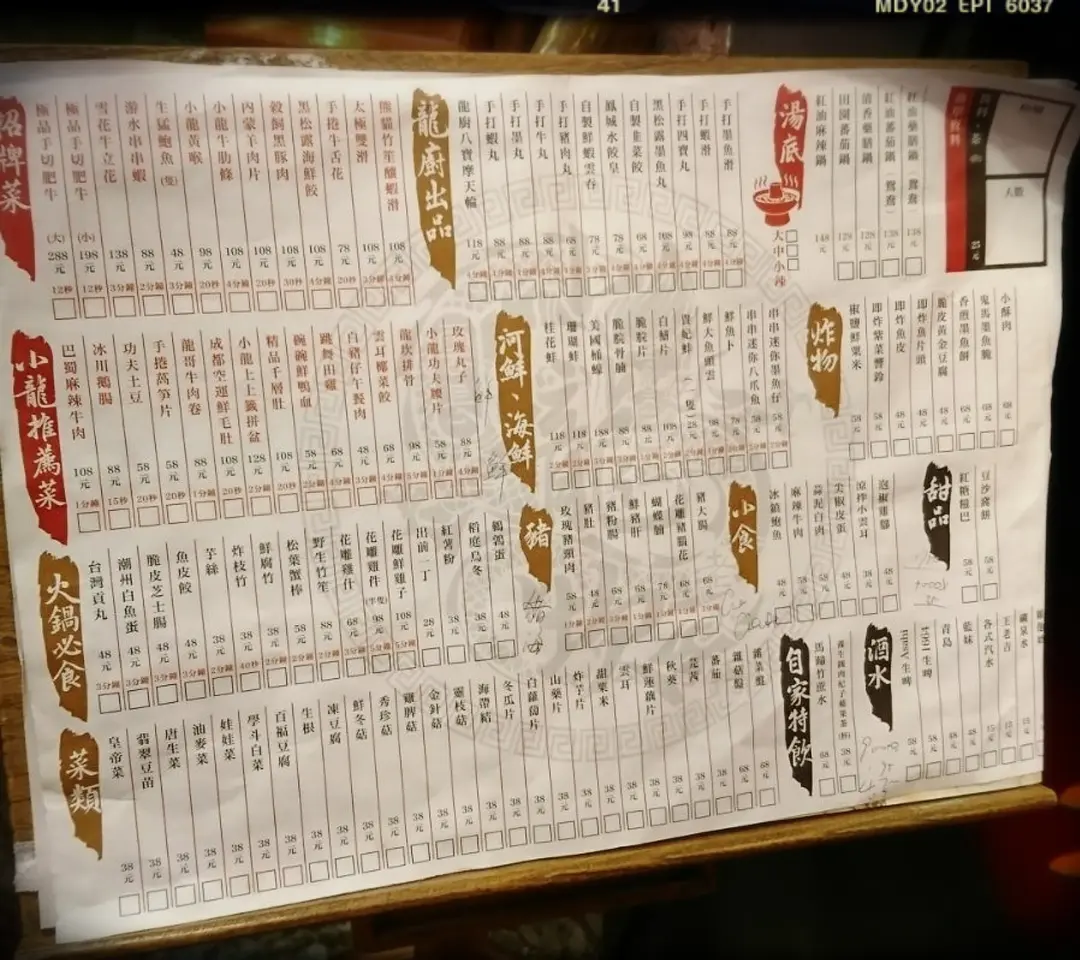 41
MDY02 EPT 6037
招牌菜
極品手切肥牛 (大) 288元 12秒
極品手切肥牛 (小) 198元 12秒
雪花牛立花 138元 3分鐘
游水串串蝦 88元 2分鐘
生猛鮑魚(隻) 48元 3分鐘
小龍黃喉 98元 20秒
小龍牛肋條 108元 4分鐘
內蒙羊肉片 108元 20秒
穀飼黑豚肉 108元 30秒
黑松露海鮮餃 108元 5分鐘
手捲牛舌花 78元 20秒
太極雙滑 108元 3分鐘
熊貓竹笙釀蝦滑 108元 4分鐘
龍廚出品
龍廚八寶摩天輪 118元 4分鐘
手打蝦丸 88元 4分鐘
手打墨丸 88元 4分鐘
手打牛丸 88元 4分鐘
手打豬肉丸 68元 4分鐘
自製鮮蝦雲吞 78元 3分鐘
鳳城水餃皇 78元 4分鐘
自製韭菜餃 68元 4分鐘
黑松露墨魚丸 108元 4分鐘
手打四寶丸 98元 4分鐘
手打蝦滑 88元 4分鐘
手打墨魚滑 88元 4分鐘
湯底
大中小辣
紅油麻辣鍋 148元
田園蕃茄鍋 128元
清香藥膳鍋 128元
紅油蕃茄鍋(鴛鴦) 138元
紅油藥膳鍋(鴛鴦) 138元
25元
人數
小龍推薦菜
巴蜀麻辣牛肉 108元 1分鐘
冰川鵝腸 88元 15秒
功夫土豆 58元 20秒
手捲萵筍片 58元 20秒
龍哥牛肉卷 88元 1分鐘
成都空運鮮毛肚 108元 20秒
小龍上上籤拼盆 128元 2分鐘
精品千層肚 108元 20秒
碗碗鮮鴨血 58元 2分鐘
跳舞田雞 68元 4分鐘
白豬仔午餐肉 48元 3分鐘
雲耳椰菜餃 68元 4分鐘
龍炊排骨 98元 5分鐘
小龍功夫腰片 58元 1分鐘
玫瑰丸子 88元 4分鐘
河鮮、海鮮
桂花蚌 118元
珊瑚蚌 118元
美國桶蠔 188元
脆脘骨腩 88元
脆脘片 88元
白鱔片 108元
貴妃蚌(一隻) 28元
鮮大魚頭雲 98元
鮮魚卜 78元
串串迷你八爪魚 58元
串串迷你墨魚仔 58元
炸物
椒鹽鮮粟米 58元
即炸紫菜響鈴 58元
即炸魚皮 48元
即炸魚片頭 48元
脆皮黃金豆腐 48元
香煎墨魚餅 68元
鬼馬墨魚脆 68元
小酥肉 68元
火鍋必食
台灣貢丸 48元 3分鐘
潮州白魚蛋 48元 3分鐘
脆皮芝士腸 48元 3分鐘
魚皮餃 48元 3分鐘
芋絲 38元 2分鐘
炸枝竹 38元 40秒
鮮腐竹 38元 2分鐘
松葉蟹棒 58元 2分鐘
野生竹笙 88元 2分鐘
花雕雞什 68元 3分鐘
花雕雞件(半隻) 98元 5分鐘
花雕鮮雞子 108元 5分鐘
出前一丁 28元
紅薯粉 38元
稻庭烏冬 38元
鵪鶉蛋 48元
豬
玫瑰豬頸肉 58元 1分鐘
豬肚 48元
豬粉腸 68元
鮮豬肝 58元
蝴蝶腩 68元
花雕豬腰花 78元
豬大腸 68元
小食
冰鎮鮑魚 48元
麻辣牛肉 58元
蒜泥白肉 58元
尖椒皮蛋 48元
涼拌小雲耳 38元
泡椒雞腳 48元
甜品
紅糖糍巴 58元
豆沙窩餅 58元
菜類
皇帝菜 38元
翡翠豆苗 38元
唐生菜 38元
油麥菜 38元
娃娃菜 38元
學斗白菜 38元
百福豆腐 38元
生根 38元
凍豆腐 38元
鮮冬菇 38元
秀珍菇 38元
雞髀菇 38元
金針菇 38元
靈枝菇 38元
海帶結 38元
冬瓜片 38元
白蘿蔔片 38元
山藥片 38元
炸芋片 38元
甜粟米 38元
雲耳 38元
鮮蓮藕片 38元
秋葵 38元
芫茜 38元
蕃茄 38元
雜菇盤 68元
雜菜盤 68元
自家特飲
馬蹄竹蔗水 68元
38元
酒水
生啤 58元
1664生啤 58元
青島 48元
藍妹 48元
各式汽水 15元
王老吉 15元
礦泉水 15元